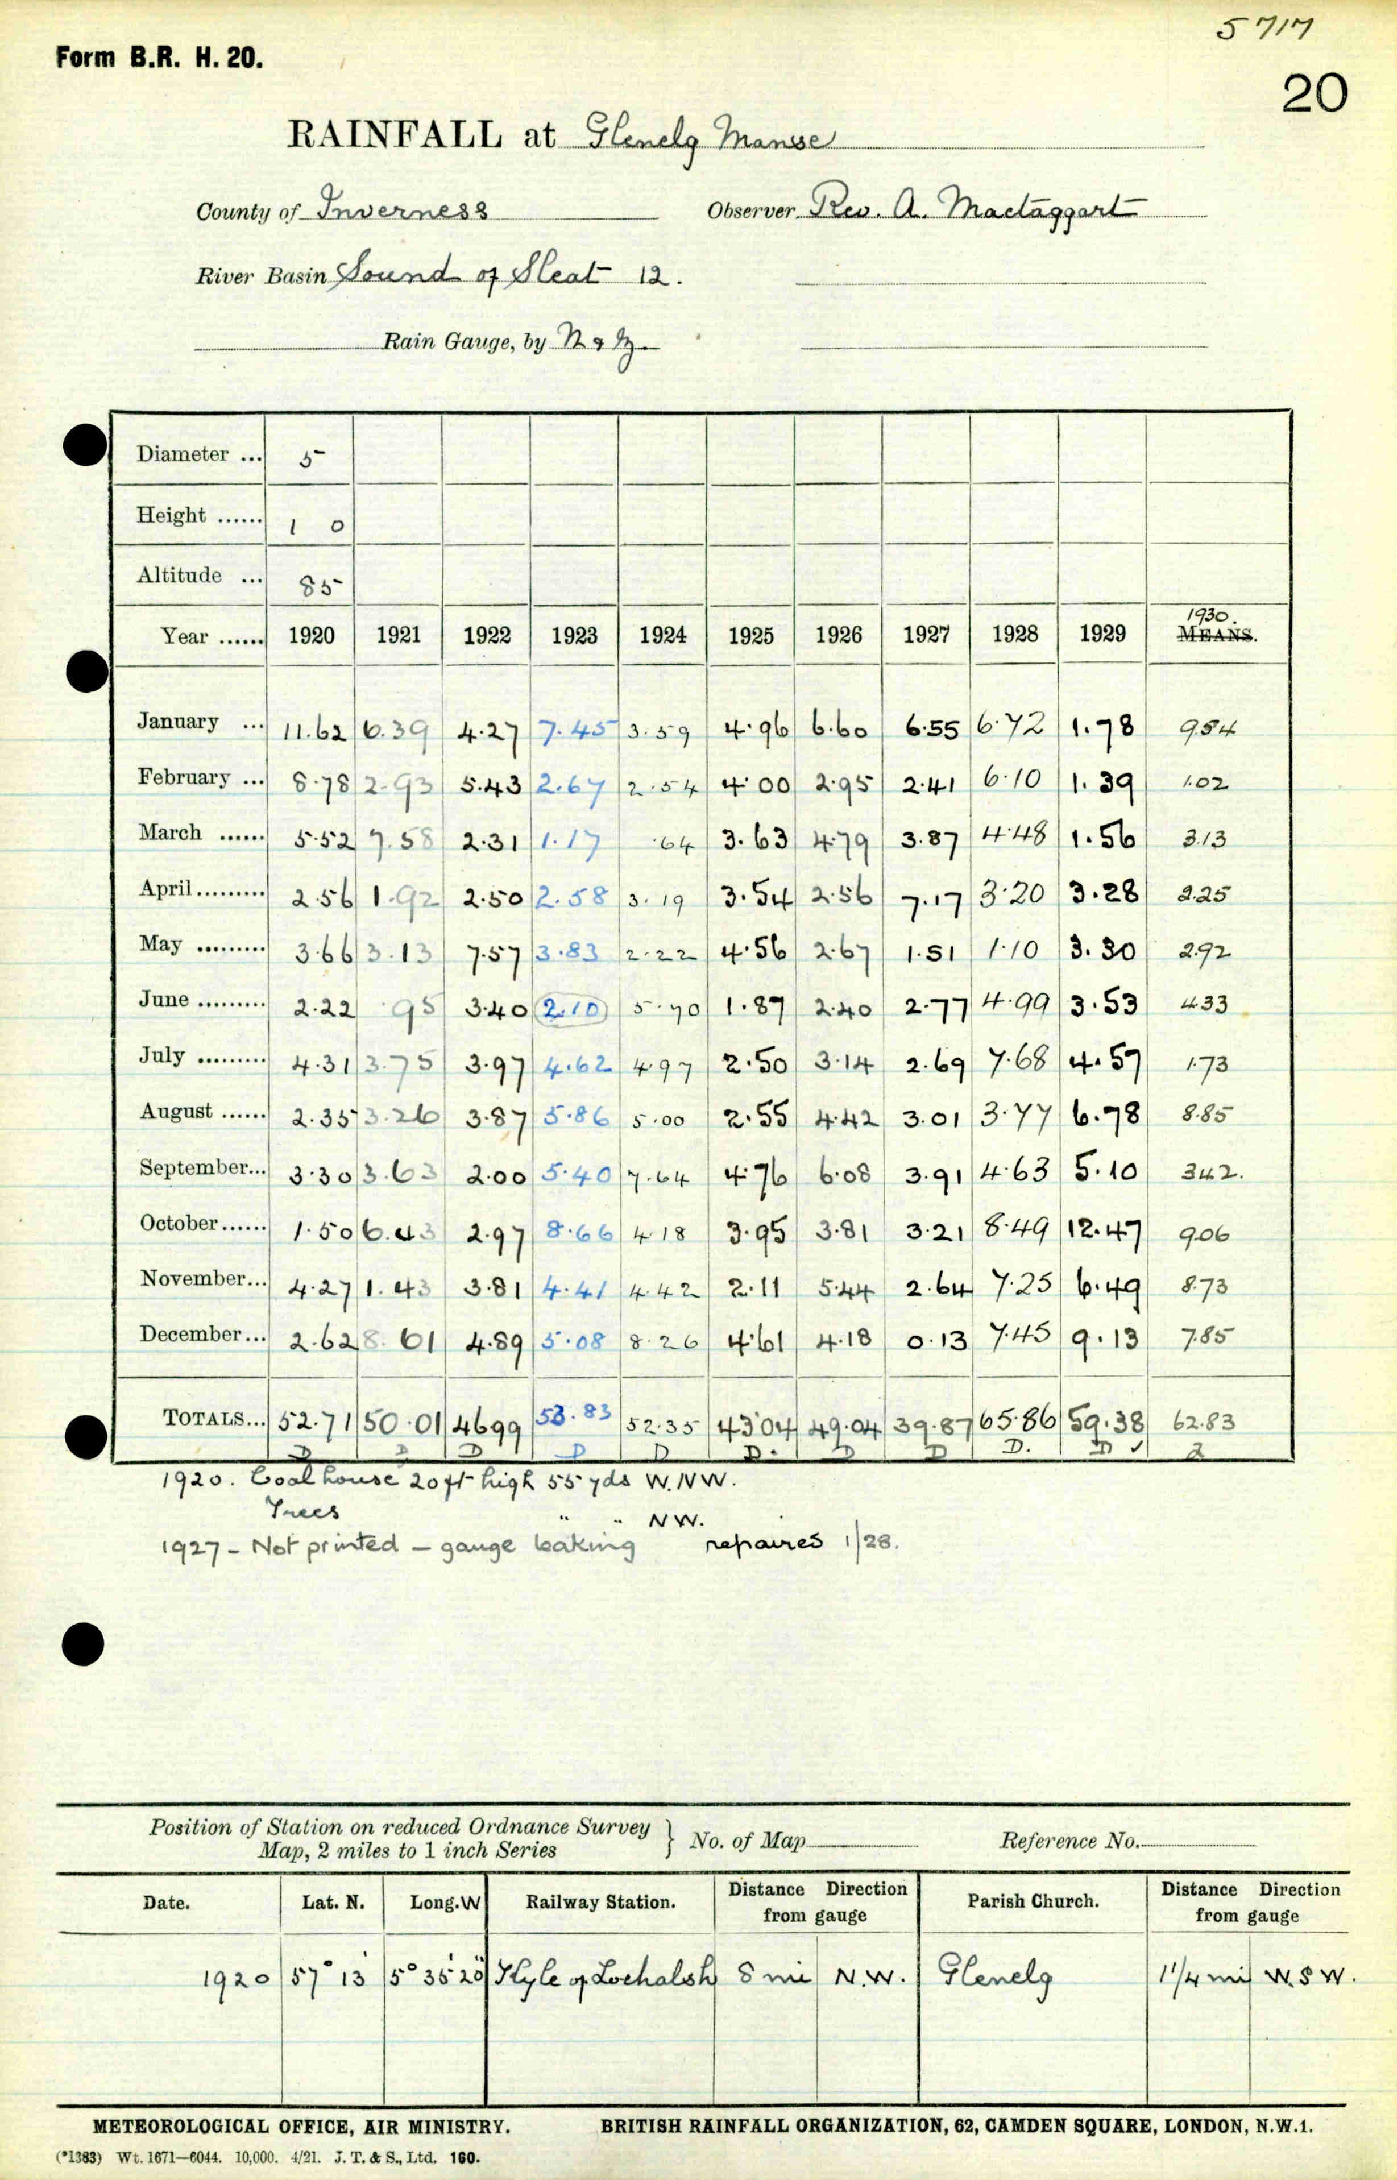 5717
Form B.R. H. 20.
20
RAINFALL at Glenelg Manse
County of Inverness Observer Rev. A. Mactaggart
River Basin Sound of Sleat 12.
Rain Gauge, by N & Z
Diameter ... 5
Height ...... 1 0
Altitude ... 85
1930.
Year ...... 1920 1921 1922 1923 1924 1925 1926 1927 1928 1929 MEANS.
January ... 11.62 6.39 4.27 7.45 3.59 4.96 6.60 6.55 6.72 1.78 9.54
February ... 8.78 2.93 5.43 2.67 2.54 4.00 2.95 2.41 6.10 1.39 1.02
March ...... 5.52 7.58 2.31 1.17 .64 3.63 4.79 3.87 4.48 1.56 3.13
April......... 2.56 1.92 2.50 2.58 3.19 3.54 2.56 7.17 3.20 3.28 2.25
May ......... 3.66 3.13 7.57 3.83 2.22 4.56 2.67 1.51 1.10 3.30 2.92
June ......... 2.22 .95 3.40 2.10 5.70 1.87 2.40 2.77 4.99 3.53 4.33
July ......... 4.31 3.75 3.97 4.62 4.97 2.50 3.14 2.69 7.68 4.57 1.73
August ...... 2.35 3.26 3.87 5.86 5.00 2.55 4.42 3.01 3.77 6.78 8.85
September... 3.30 3.63 2.00 5.40 7.64 4.76 6.08 3.91 4.63 5.10 3.42.
October...... 1.50 6.43 2.97 8.66 4.18 3.95 3.81 3.21 8.49 12.47 9.06
November... 4.27 1.43 3.81 4.41 4.42 2.11 5.44 2.64 7.25 6.49 8.73
December... 2.62 8.61 4.89 5.08 8.26 4.61 4.18 0.13 7.45 9.13 7.85
TOTALS... 52.71 50.01 46.99 53.83 52.35 43.04 49.04 39.87 65.86 59.38 62.83
D D D D D D. D D D. D ✓
1920. Coal house 20 ft high 55 yds W.NW.
Trees " " NW.
1927 - Not printed - gauge leaking repaires 1/28.
Position of Station on reduced Ordnance Survey
Map, 2 miles to 1 inch Series } No. of Map Reference No.
Date. Lat. N. Long. W Railway Station. Distance Direction from gauge Parish Church. Distance Direction from gauge
1920 57° 13' 5° 35' 20" Kyle of Lochalsh 8 mi N.W. Glenelg 1 1/4 mi W.S W.
METEOROLOGICAL OFFICE, AIR MINISTRY. BRITISH RAINFALL ORGANIZATION, 62, CAMDEN SQUARE, LONDON, N.W.1.
(*1383) Wt. 1671—6044. 10,000. 4/21. J. T. & S., Ltd. 160.